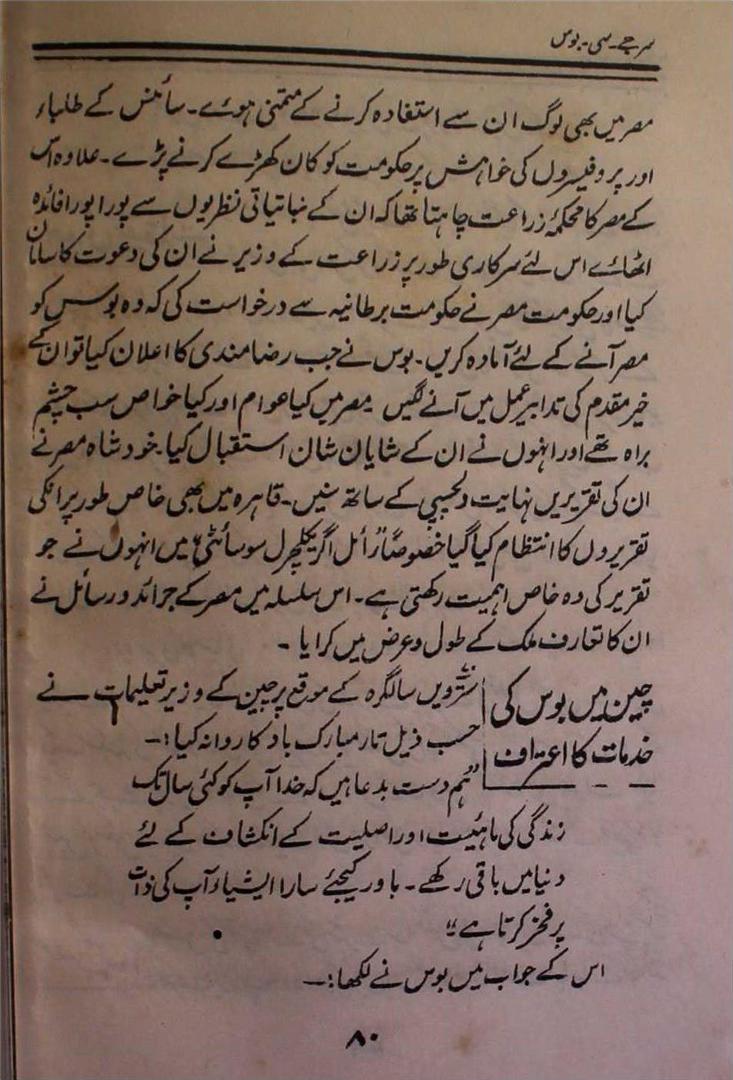 سر جے۔سی۔بوس
مصر میں بھی لوگ ان سے استفادہ کرنے کے متمنی ہوئے۔ سائنس کے طلباء
اور پروفیسروں کی خواہش پر حکومت کو کان کھڑے کرنے پڑے۔ علاوہ اس
کے مصر کا محکمۂ زراعت چاہتا تھا کہ ان کے نباتیاتی نظریوں سے پورا پورا فائدہ
اٹھائے اس لئے سرکاری طور پر زراعت کے وزیر نے ان کی دعوت کا سامان
کیا اور حکومت مصر نے حکومت برطانیہ سے درخواست کی کہ وہ بوس کو
مصر آنے کے لئے آمادہ کریں۔ بوس نے جب رضامندی کا اعلان کیا تو ان کے
خیر مقدم کی تدابیر عمل میں آنے لگیں مصر میں کیا عوام اور کیا خواص سب چشم
براہ تھے اور انہوں نے ان کے شایان شان استقبال کیا۔ خود شاہ مصر نے
ان کی تقریریں نہایت دلچسپی کے ساتھ سنیں۔ قاہرہ میں بھی خاص طور پر انکی
تقریروں کا انتظام کیا گیا خصوصاً رائل اگریکلچرل سوسائٹی میں انہوں نے جو
تقریر کی وہ خاص اہمیت رکھتی ہے۔ اس سلسلہ میں مصر کے جرائد و رسائل نے
ان کا تعارف ملک کے طول و عرض میں کرایا ۔
چین میں بوس کی
خدمات کا اعتراف
سترویں سالگرہ کے موقع پر چین کے وزیر تعلیمات نے
حسب ذیل تار مبارک باد کا روانہ کیا:۔
"ہم دست بدعا ہیں کہ خدا آپ کو کئی سال تک
زندگی کی ماہیت اور اصلیت کے انکشاف کے لئے
دنیا میں باقی رکھے۔ باور کیجئے سارا ایشیاء آپ کی ذات
پر فخر کرتا ہے"
اس کے جواب میں بوس نے لکھا:۔
۸۰